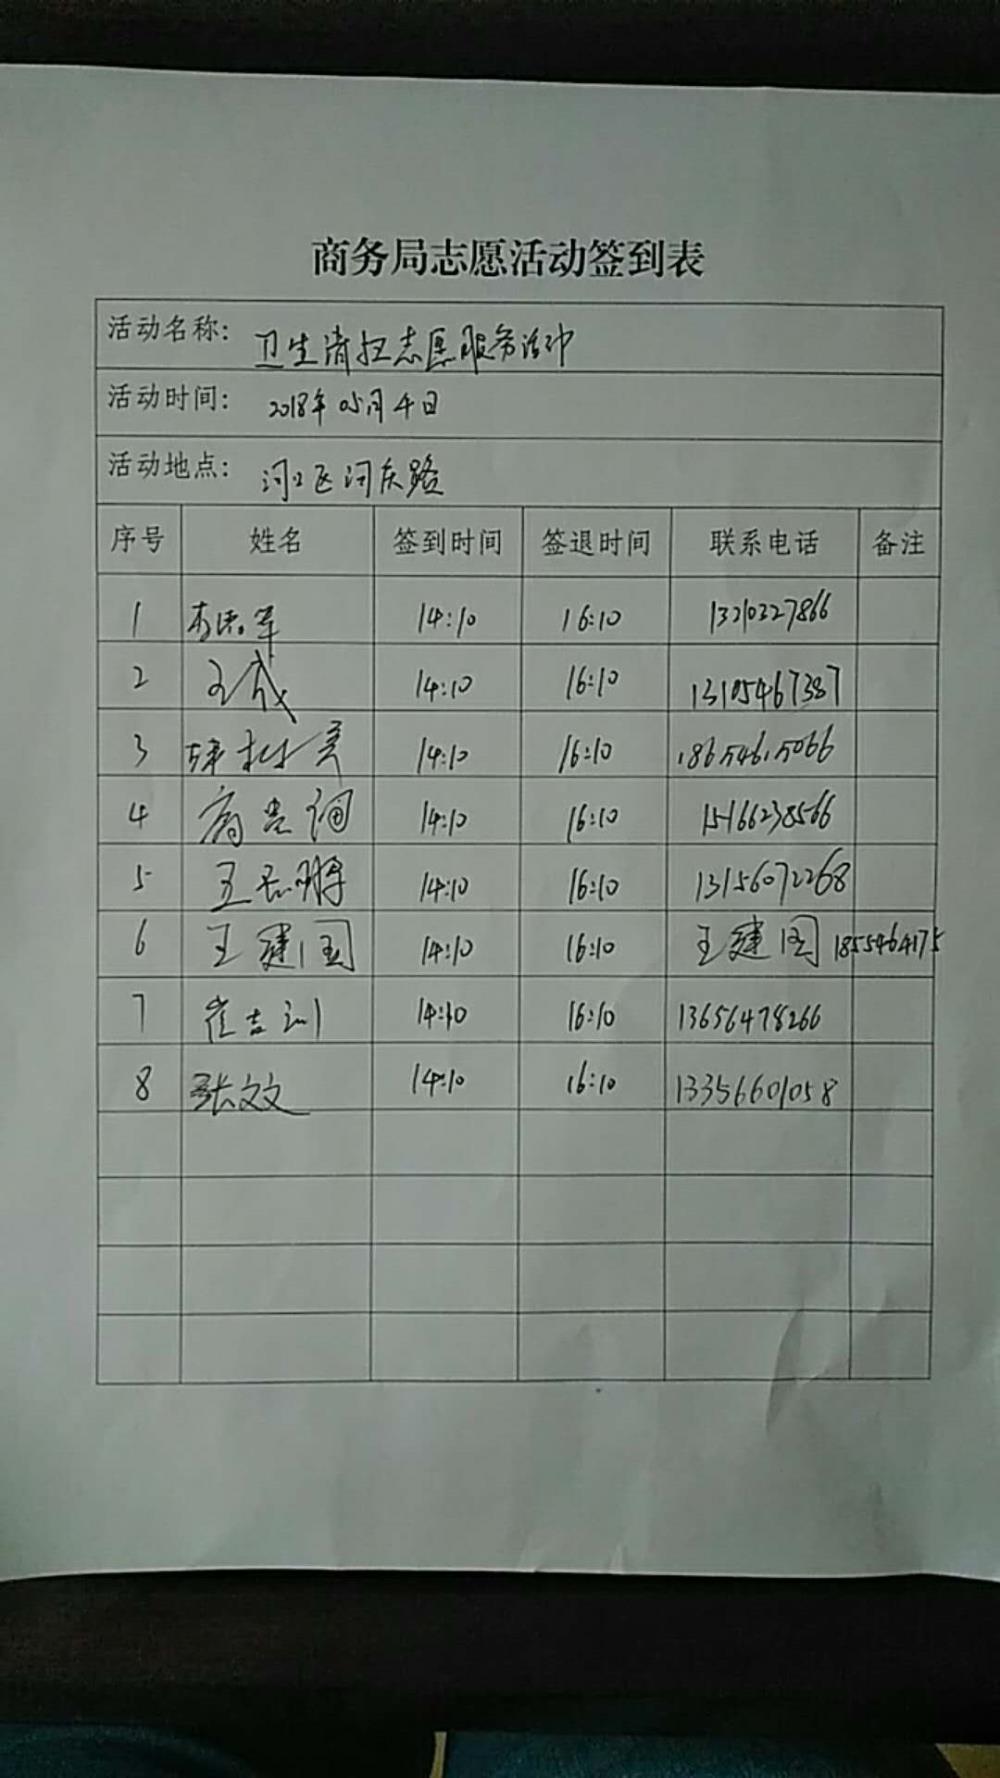 商务局志愿活动签到表
活动名称: 卫生清扫志愿服务活动
活动时间: 2018年05月4日
活动地点: 河口区河庆路
序号 姓名 签到时间 签退时间 联系电话 备注
1 14:10 16:10 13210327866
2 王成 14:10 16:10 13105467387
3 14:10 16:10 18654615066
4 14:10 16:10 15166238566
5 14:10 16:10 13156072268
6 王建国 14:10 16:10 王建国 1855464175
7 崔吉训 14:10 16:10 13656478266
8 张文文 14:10 16:10 13356601058